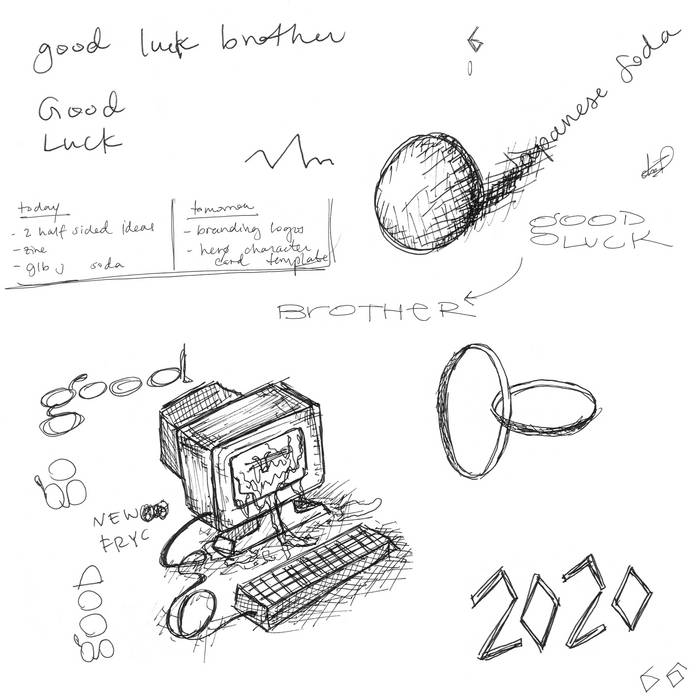 good luck brother
Good
Luck
Japanese Soda
today
- 2 half sided ideas
- zine
- glb j soda
tomorrow
- branding logos
- hero character
card template
GOOD
LUCK
BROTHER
good
go
good
NEW
FRYC
2020